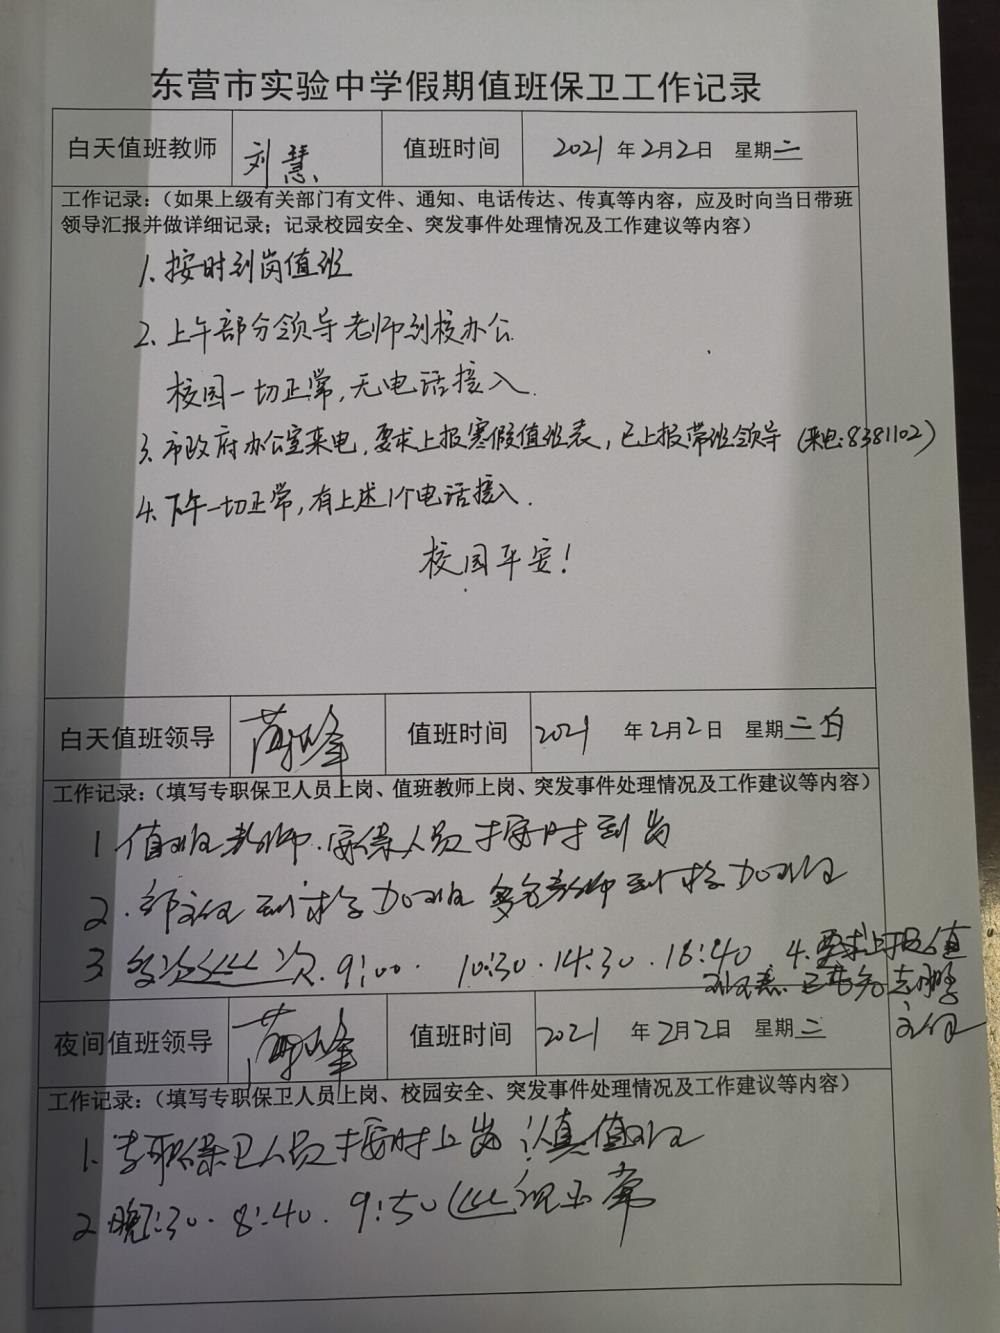 东营市实验中学假期值班保卫工作记录
白天值班教师 刘慧 值班时间 2021年2月2日 星期二
工作记录:(如果上级有关部门有文件、通知、电话传达、传真等内容，应及时向当日带班
领导汇报并做详细记录；记录校园安全、突发事件处理情况及工作建议等内容)
1、按时到岗值班
2、上午部分领导老师到校办公
校园一切正常，无电话接入.
3、市政府办公室来电，要求上报寒假值班表，已上报带班领导(来电:8381102)
4、下午一切正常，有上述1个电话接入.
校园平安!
白天值班领导 值班时间 2021年2月2日 星期二白
工作记录:(填写专职保卫人员上岗、值班教师上岗、突发事件处理情况及工作建议等内容)
1 值班教师.安保人员按时到岗
2. 到校加班 多名教师到校加班
3 9:00. 10:30.14:30.18:40 4.要求上报值
主任
夜间值班领导 值班时间 2021年2月2日 星期二
工作记录:(填写专职保卫人员上岗、校园安全、突发事件处理情况及工作建议等内容)
1.专职保卫人员按时上岗 认真值班
2 晚7:30.8:40.9:50巡视正常